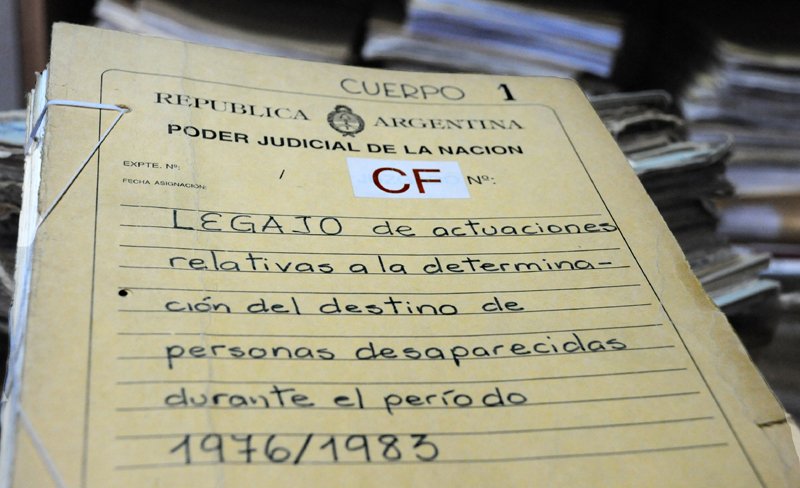 CUERPO 1
REPUBLICA ARGENTINA
PODER JUDICIAL DE LA NACION
EXPTE. Nº: / CF Nº:
FECHA ASIGNACION:
LEGAJO de actuaciones
relativas a la determina-
ción del destino de
personas desaparecidas
durante el período
1976/1983